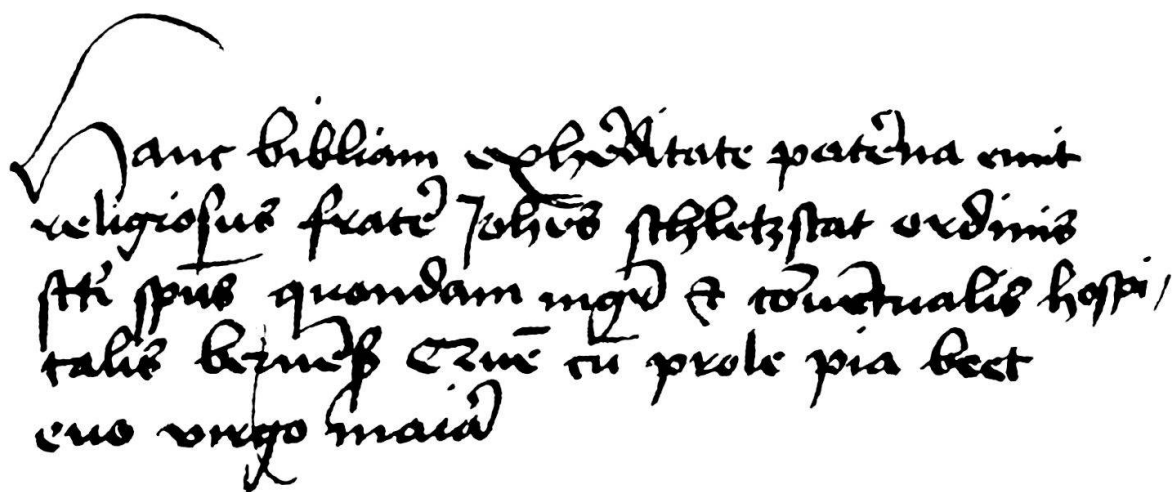 Hanc bibliam ex her̃ditate pater̃na emit
religiosus frater̃ Joħes schletzstat ordinis
sct̃i sp̃us quondam mgr̃ & cõuẽtualis hospi/
talis berneñ cũ prole pia beet
euo virgo maia